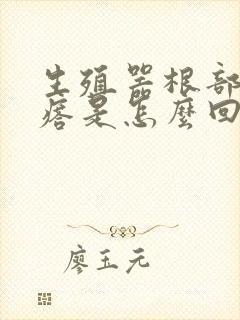 生殖器根部
痞是怎麼回
廖玉元